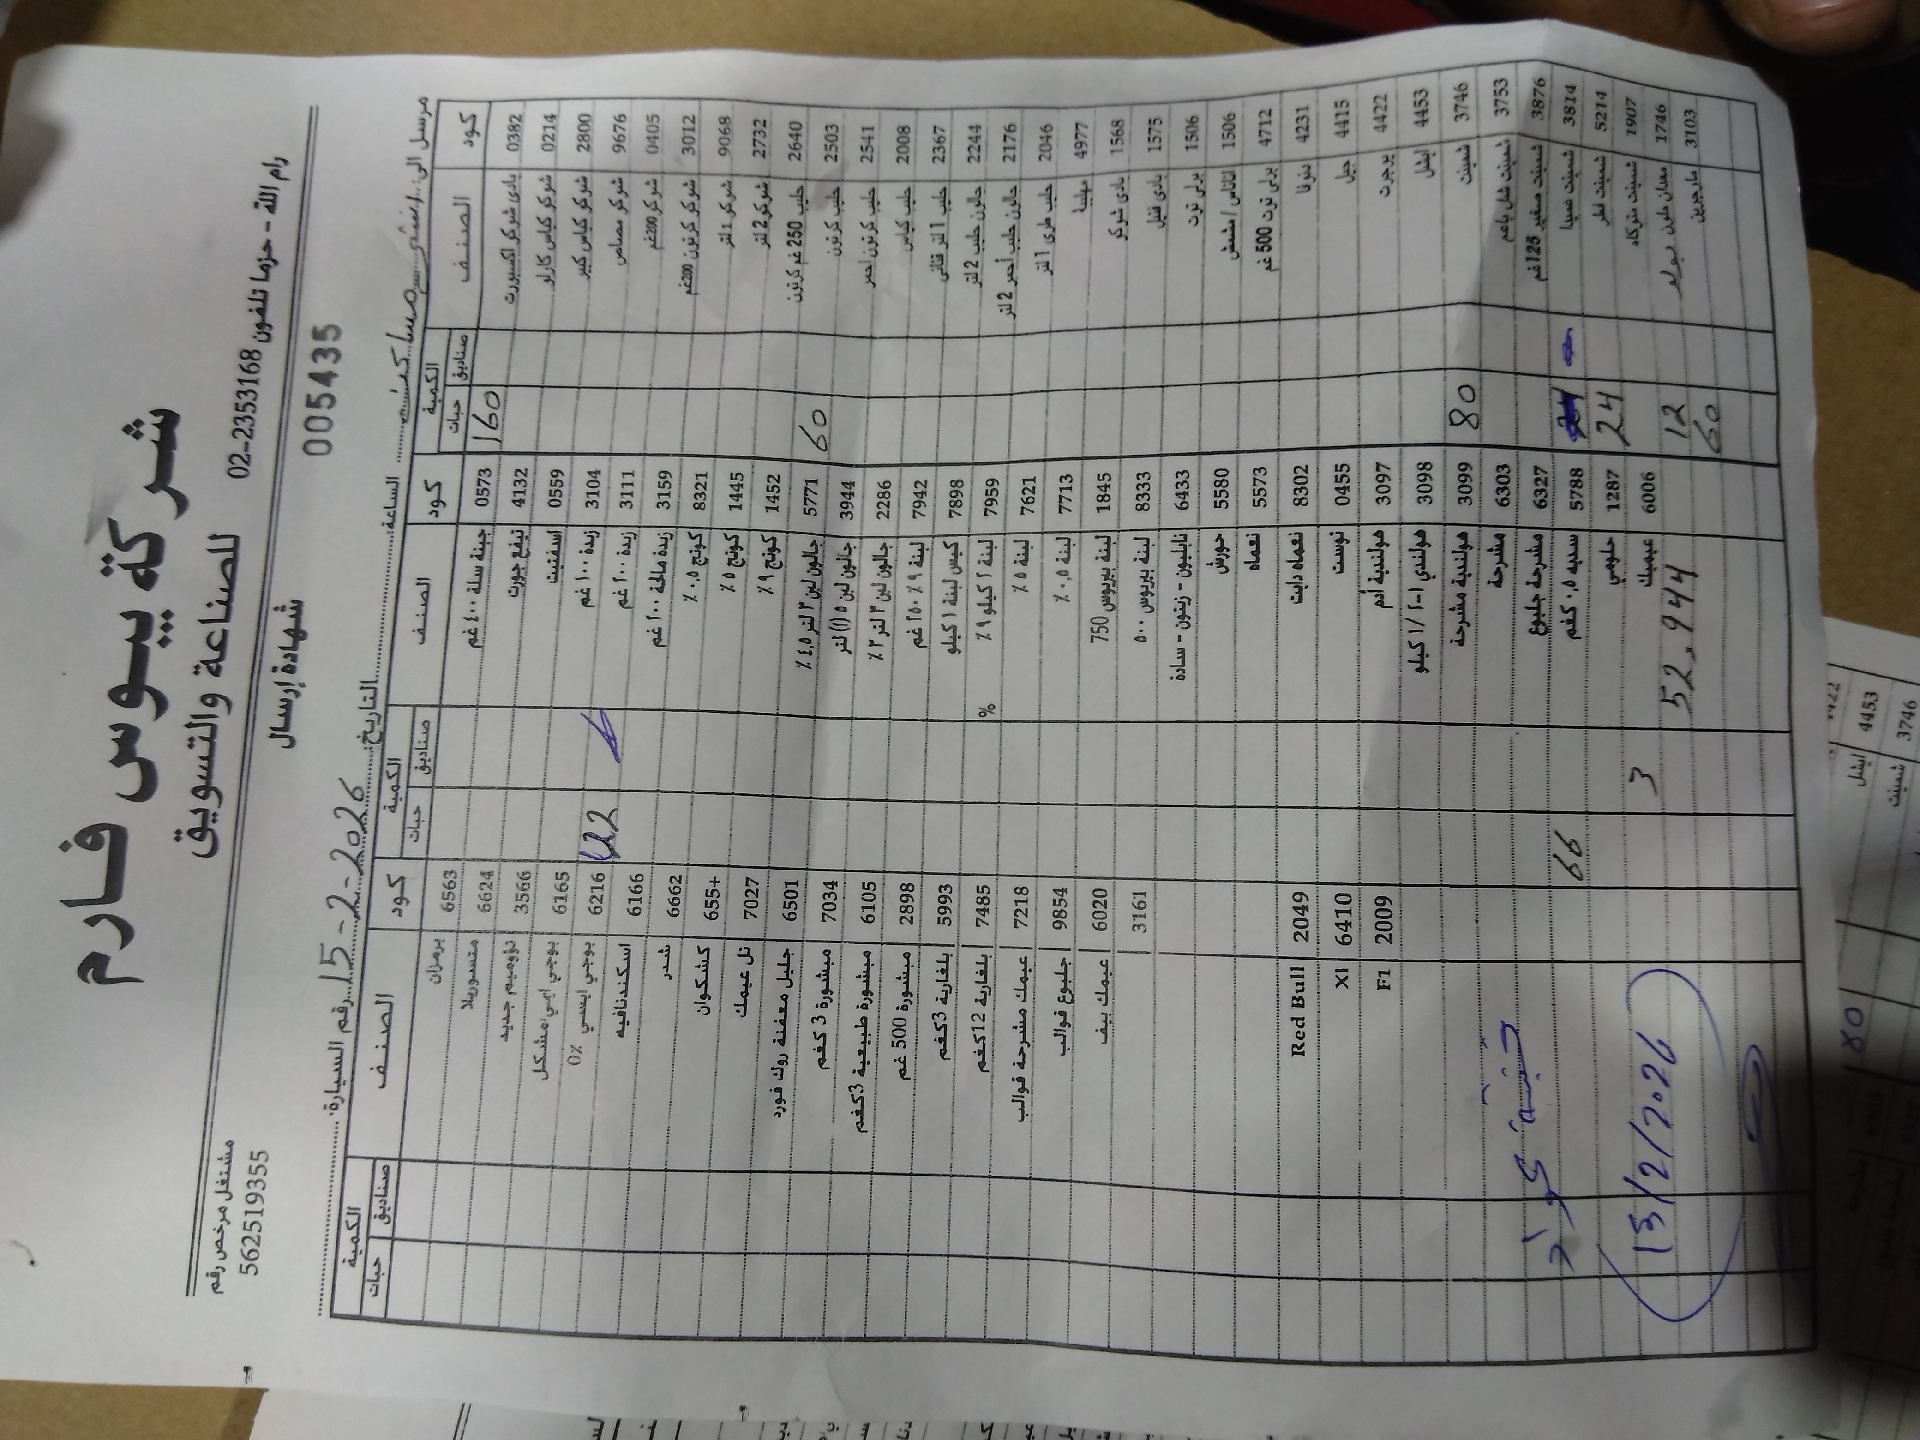 شركة يبوس فارم
للصناعة والتسويق
مشتغل مرخص رقم
562519355
رام الله - حزما تلفون 02-2353168
شهادة إرسال
005435
مرسل الى: الساعة: التاريخ: 15-2-2026 رقم السيارة:
كود الصنف الكمية كود الصنف الكمية كود الصنف الكمية
حبات صناديق حبات صناديق حبات صناديق
0382 بادي شوكو اكسبورت 160 0573 جبنة سلة ٤٠٠ غم 6563 برمزان
0214 شوكو كياس كارلو 4132 نيفع جورت 6624 متسوريلا
2800 شوكو كياس كبير 0559 اسفنيت 3566 نؤوميم جديد
9676 شوكو مصاص 3104 زبدة ١٠٠ غم 6165 يوجي ايسي مشكل
0405 شوكو 200غم 3111 زبدة ٢٠٠ غم 6216 يوجي ايسي 0٪
3012 شوكو كرتون 200غم 3159 زبدة مالحة ١٠٠ غم 6166 اسكندنافيه
9068 شوكو 1 لتر 8321 كوتج ٠,٥ ٪ 6662 شدر
2732 شوكو 2 لتر 1445 كوتج ٥ ٪ 655+ كشكوان
2640 حليب 250 غم كرتون 60 1452 كوتج ٩ ٪ 7027 تل عيمك
2503 حليب كرتون 5771 جالون لبن ٣ لتر ٤,٥ ٪ 6501 جليل معفنة روك فورد
2541 حليب كرتون احمر 3944 جالون لبن (١) ٥ لتر 7034 مبشورة 3 كغم
2008 حليب كياس 2286 جالون لبن ٣ لتر ٣ ٪ 6105 مبشورة طبيعية 3كغم
2367 حليب 1 لتر قناني 7942 لبنة ٩ ٪ ٢٥٠ غم 2898 مبشورة 500 غم
2244 جالون حليب 2 لتر 7898 كيس لبنة ١ كيلو 5993 بلغارية 3كغم
2176 جالون حليب أحمر 2 لتر 7959 لبنة ١ كيلو ٩ ٪ % 7485 بلغارية 12كغم
2046 حليب طري 1 لتر 7621 لبنة ٥ ٪ 7218 عيمك مشرحة قوالب
4977 مهلبية 7713 لبنة ٠,٥ ٪ 9854 جلبوع قوالب
1568 بادي شوكو 1845 لبنة بيريوس 750 6020 عيمك بيف
1575 بادي فنيل 8333 لبنة بيريوس ٥٠٠ 3161
1506 برلي توت 6433 نابليون - زيتون - سادة
1506 اناناس / مشمش 5580 حورش
4712 برلي توت 500 غم 5573 نعماه
4231 دنونا 8302 نعماه دايت 2049 Red Bull
4415 جيل 0455 توست 6410 Xl
4422 يوجرت 3097 هولندية أدم 2009 F1
4453 ايشل 3098 هولندي ١-١ / ١ كيلو
3746 شمينت 80 3099 هولندية مشرحة
3753 شمينت شلي باعم 6303 مشرحة
3876 شمينت صغير 125غم 6327 مشرحة جلبوع
3814 شمينت صويا 5788 سديه ٠,٥ كغم 66
5214 شمينت قطر 24 1287 حلومي
1907 شمينت متوكاه 6006 عيميك 3
1746 12 52.944
3103 مارجرين 60
15/2/2026
4422
4453 ايشل
3746 شمينت
80